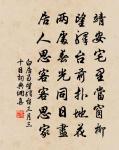 靖安宅里當窗柳
望驛台前撲地花
兩處春光同日盡
居人思客客思家
白居易望驛台三月三
十日詞典網集